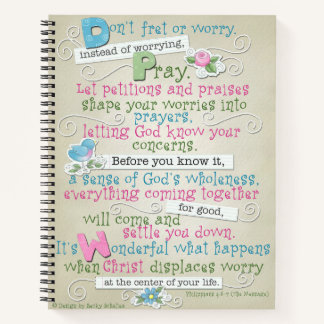 Don't fret or worry.
Instead of worrying,
Pray.
Let petitions and praises
shape your worries into
prayers,
letting God know your
concerns.
Before you know it,
a sense of God's wholeness,
everything coming together
for good,
will come and
settle you down.
It's Wonderful what happens
when Christ displaces worry
at the center of your life.
Philippians 4:6-7 (The Message)
© Design by Becky